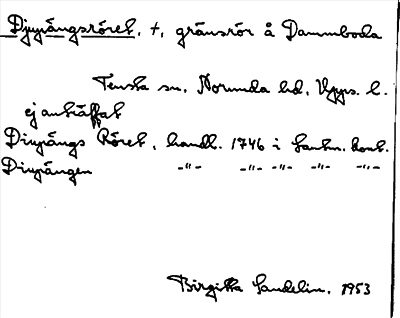 Djupängsröret, +, gränsrör å Dammboda
Tensta sn, Norunda hd, Upps. l.
ej anträffat
Diupängs Röret, handl. 1746 i Lantm. kont.
Diupängen -"- -"- -"- -"- -"-
Birgitta Sandelin. 1953